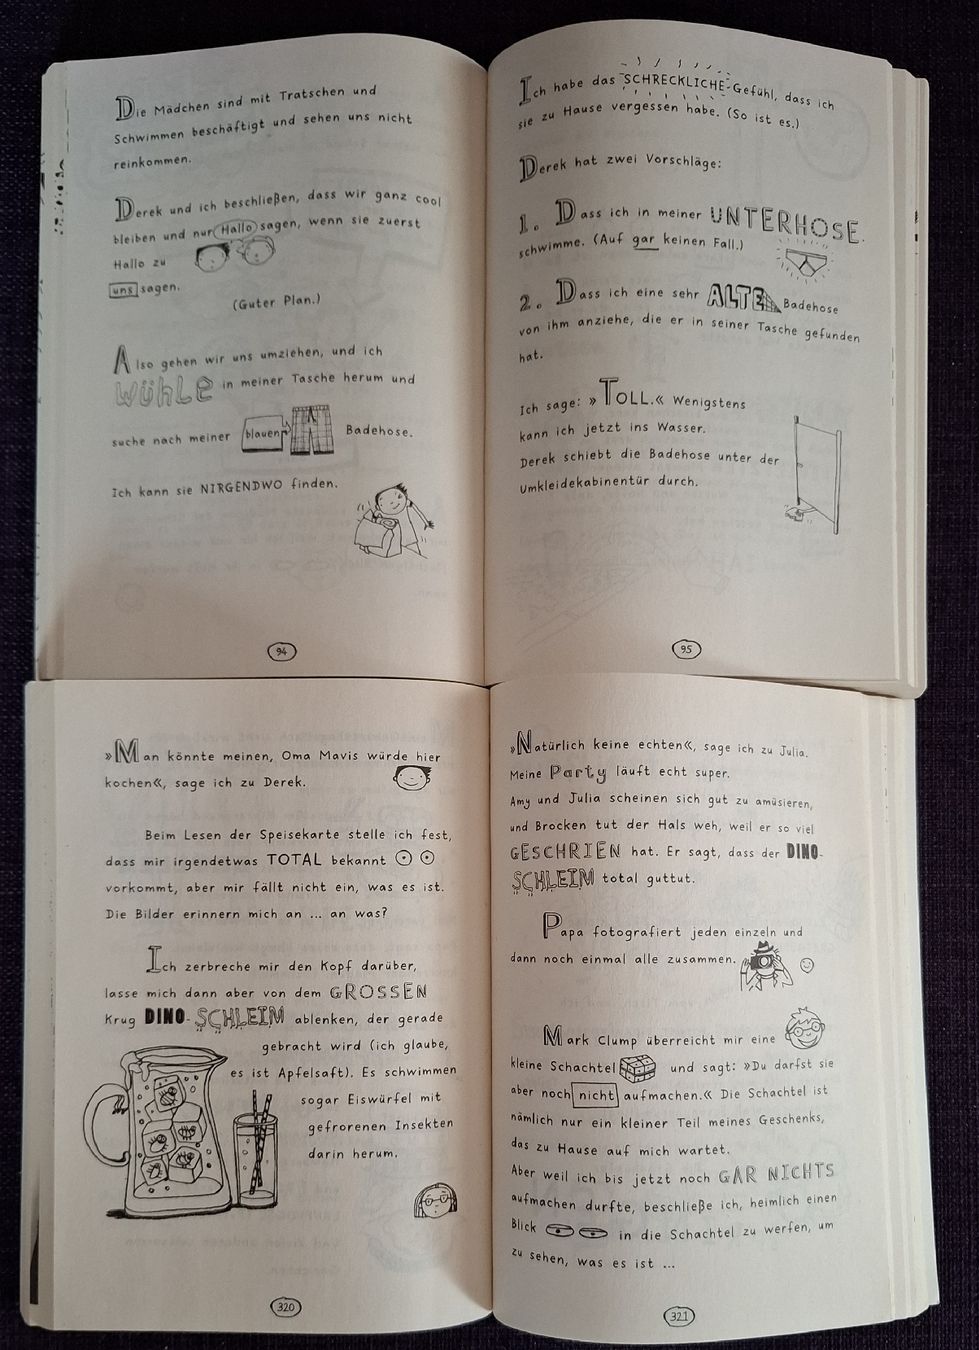 Die Mädchen sind mit Tratschen und
Schwimmen beschäftigt und sehen uns nicht
reinkommen.
Derek und ich beschließen, dass wir ganz cool
bleiben und nur Hallo sagen, wenn sie zuerst
Hallo zu
uns sagen.
(Guter Plan.)
Also gehen wir uns umziehen, und ich
wühle in meiner Tasche herum und
suche nach meiner blauen Badehose.
Ich kann sie NIRGENDWO finden.
94
Ich habe das SCHRECKLICHE-Gefühl, dass ich
sie zu Hause vergessen habe. (So ist es.)
Derek hat zwei Vorschläge:
1. Dass ich in meiner UNTERHOSE
schwimme. (Auf gar keinen Fall.)
2. Dass ich eine sehr ALTE Badehose
von ihm anziehe, die er in seiner Tasche gefunden
hat.
Ich sage: »TOLL.« Wenigstens
kann ich jetzt ins Wasser.
Derek schiebt die Badehose unter der
Umkleidekabinentür durch.
95
»Man könnte meinen, Oma Mavis würde hier
kochen«, sage ich zu Derek.
Beim Lesen der Speisekarte stelle ich fest,
dass mir irgendetwas TOTAL bekannt
vorkommt, aber mir fällt nicht ein, was es ist.
Die Bilder erinnern mich an ... an was?
Ich zerbreche mir den Kopf darüber,
lasse mich dann aber von dem GROSSEN
Krug DINO-SCHLEIM ablenken, der gerade
gebracht wird (ich glaube,
es ist Apfelsaft). Es schwimmen
sogar Eiswürfel mit
gefrorenen Insekten
darin herum.
320
»Natürlich keine echten«, sage ich zu Julia.
Meine Party läuft echt super.
Amy und Julia scheinen sich gut zu amüsieren,
und Brocken tut der Hals weh, weil er so viel
GESCHRIEN hat. Er sagt, dass der DINO-
SCHLEIM total guttut.
Papa fotografiert jeden einzeln und
dann noch einmal alle zusammen.
Mark Clump überreicht mir eine
kleine Schachtel und sagt: »Du darfst sie
aber noch nicht aufmachen.« Die Schachtel ist
nämlich nur ein kleiner Teil meines Geschenks,
das zu Hause auf mich wartet.
Aber weil ich bis jetzt noch GAR NICHTS
aufmachen durfte, beschließe ich, heimlich einen
Blick in die Schachtel zu werfen, um
zu sehen, was es ist ...
321